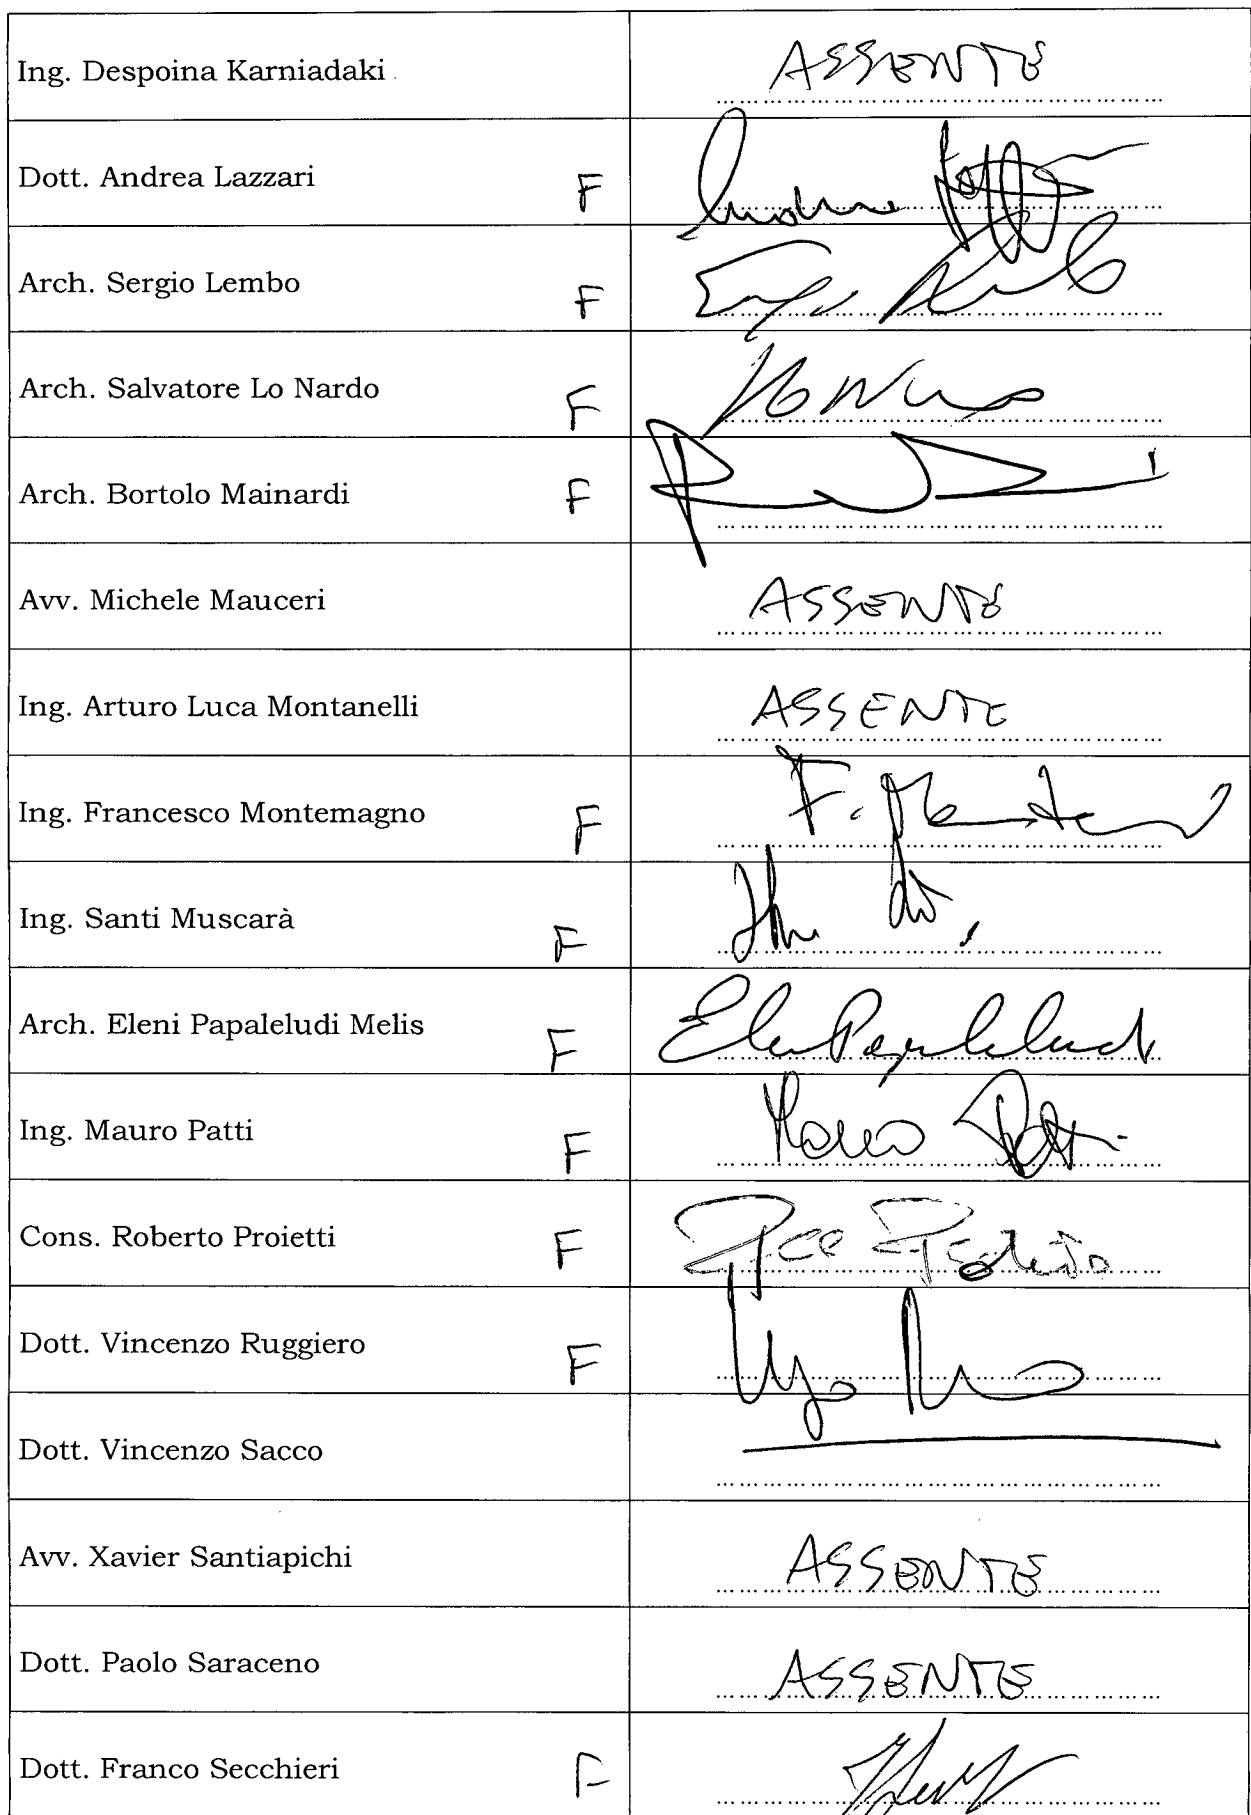 Ing. Despoina Karniadaki ASSENTE
Dott. Andrea Lazzari F
Arch. Sergio Lembo F
Arch. Salvatore Lo Nardo F
Arch. Bortolo Mainardi F
Avv. Michele Mauceri ASSENTE
Ing. Arturo Luca Montanelli ASSENTE
Ing. Francesco Montemagno F
Ing. Santi Muscarà F
Arch. Eleni Papaleludi Melis F
Ing. Mauro Patti F
Cons. Roberto Proietti F
Dott. Vincenzo Ruggiero F
Dott. Vincenzo Sacco
Avv. Xavier Santiapichi ASSENTE
Dott. Paolo Saraceno ASSENTE
Dott. Franco Secchieri F